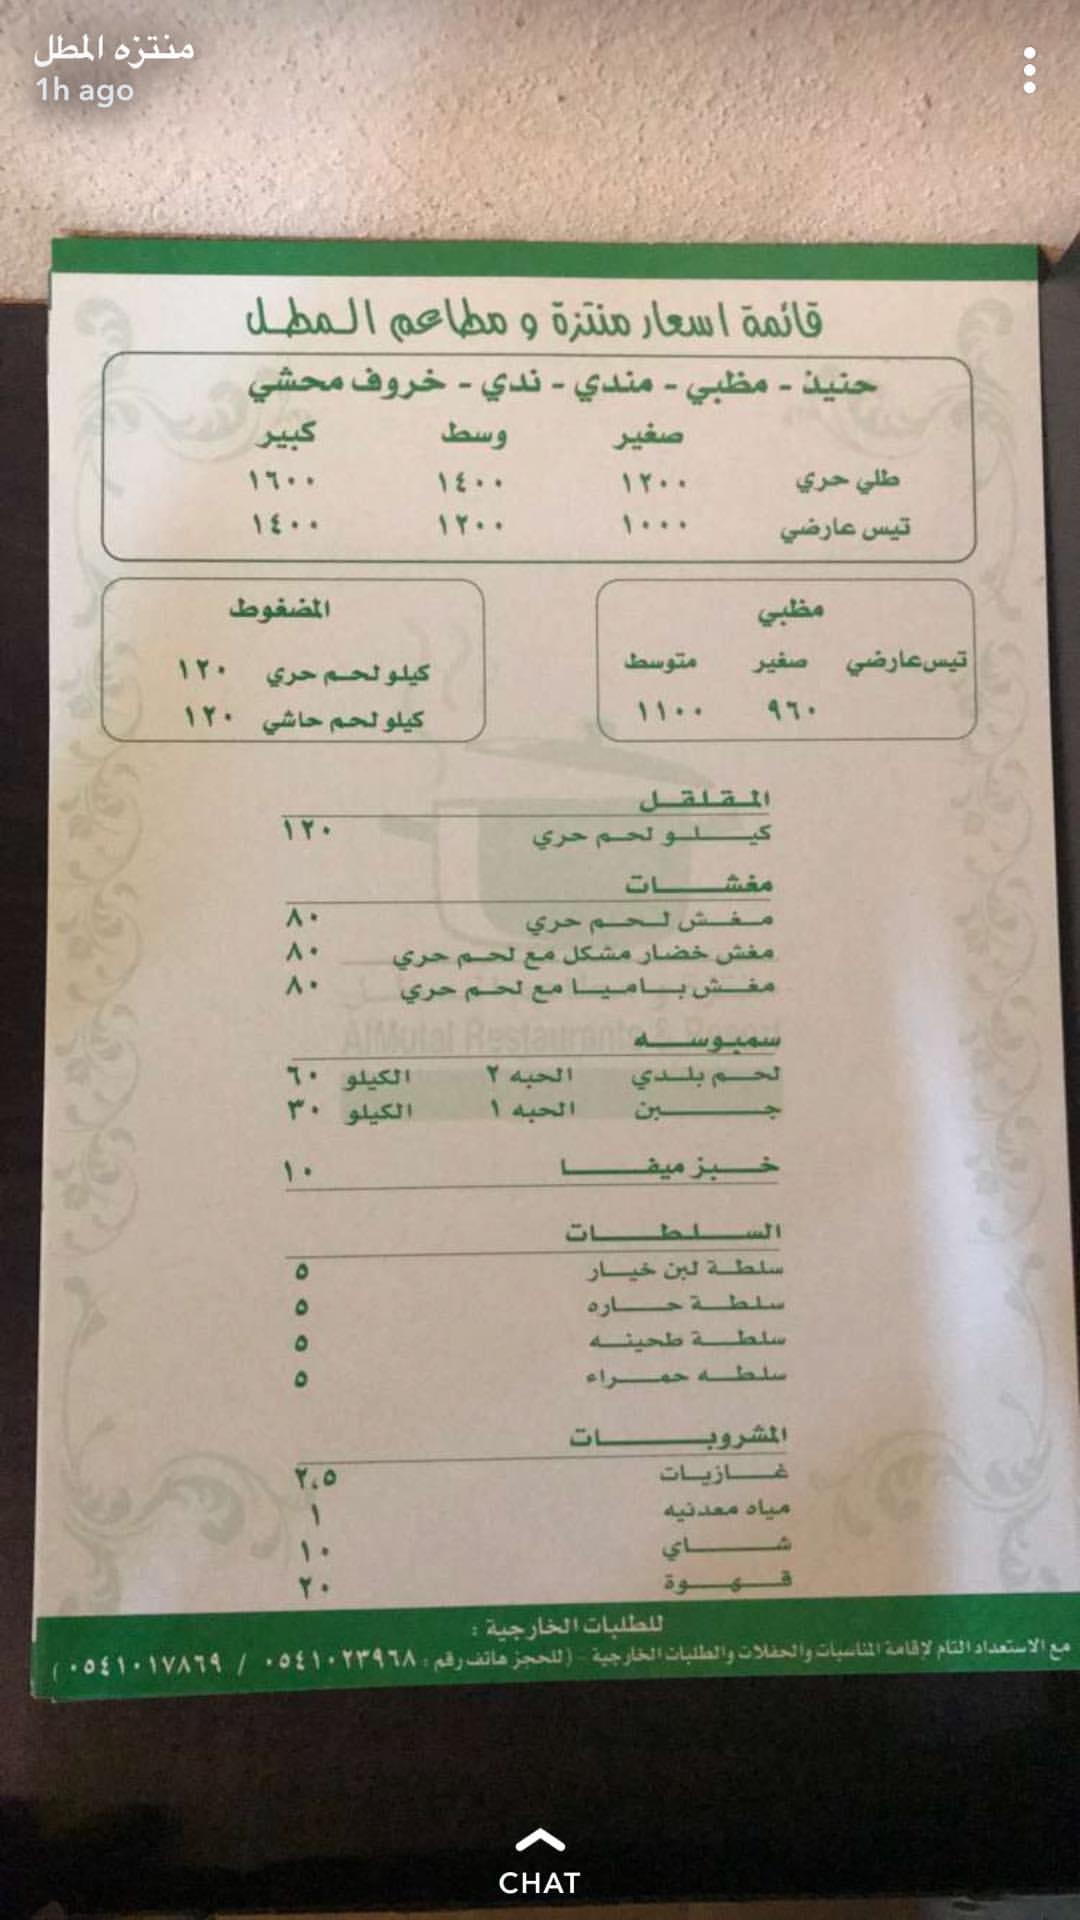 منتزه المطل
1h ago
قائمة اسعار منتزة و مطاعم المطل
حنيذ - مظبي - مندي - ندي - خروف محشي
صغير وسط كبير
طلي حري ١٢٠٠ ١٤٠٠ ١٦٠٠
تيس عارضي ١٠٠٠ ١٢٠٠ ١٤٠٠
مظبي
تيس عارضي صغير متوسط
٩٦٠ ١١٠٠
المضغوط
كيلو لحم حري ١٢٠
كيلو لحم حاشي ١٢٠
المقلقل
كيلو لحم حري ١٢٠
مغشات
مغش لحم حري ٨٠
مغش خضار مشكل مع لحم حري ٨٠
مغش باميا مع لحم حري ٨٠
AlMotal Restaurants & Resort
سمبوسه
لحم بلدي الحبه ٢ الكيلو ٦٠
جبن الحبه ١ الكيلو ٣٠
خبز ميفا ١٠
السلطات
سلطة لبن خيار ٥
سلطة حاره ٥
سلطة طحينه ٥
سلطه حمراء ٥
المشروبات
غازيات ٢,٥
مياه معدنيه ١
شاي ١٠
قهوة ٢٠
للطلبات الخارجية :
مع الاستعداد التام لإقامة المناسبات والحفلات والطلبات الخارجية - ( للحجز هاتف رقم : ٠٥٤١٠٢٣٩٦٨ / ٠٥٤١٠١٧٨٦٩ )
CHAT